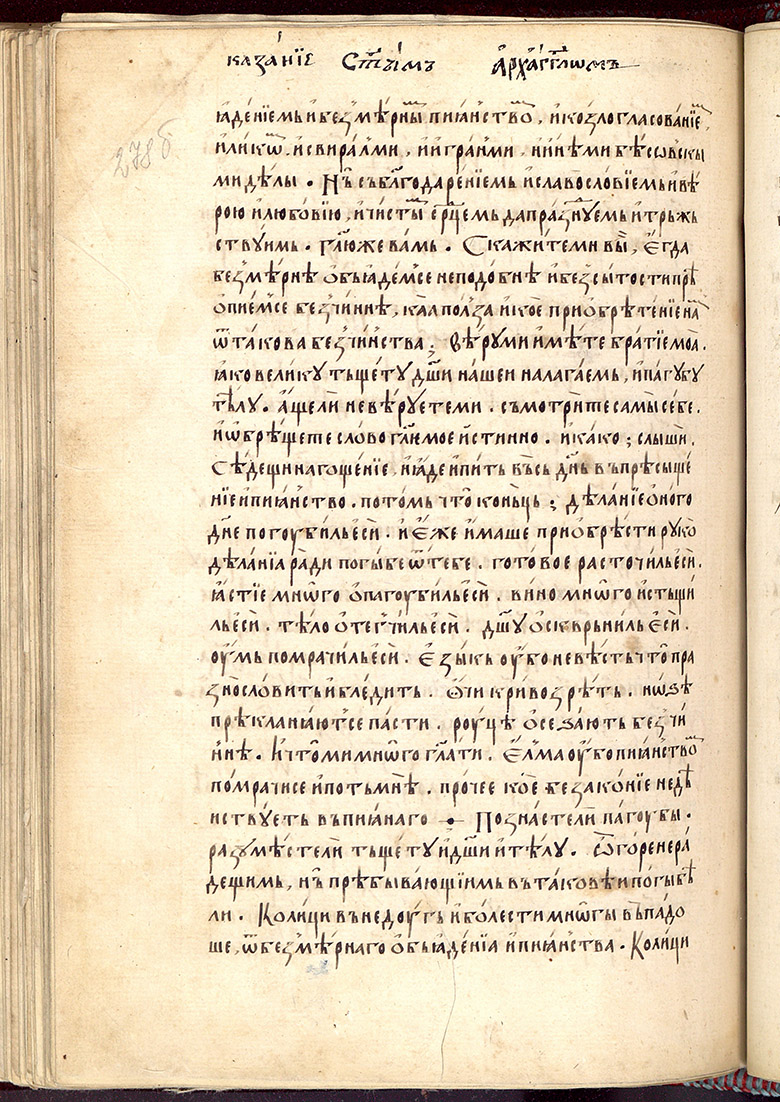 казанїе Ст҃ы́мъ А҆рха́гг҃лѡмъ
278 б
ꙗ҆де́нїемь и҆ без̾мѣ́рны пиꙗ҆́нство, и҆ козлогласова́нїе,
и҆ ликѡ. и҆ свира́лми, и҆ и҆гра́нми, и҆ и҆нѣ́ми бѣсѡ́вскы
ми дѣ́лы. Нь̀ съ бл҃годаре́нїемь и҆ славосло́вїемь и҆ вѣ́
рою и҆ любо́вїю, и҆ чи́сты ср҃цемь да пра́знуемь и҆ трьжь
ствуимь. гл҃ю же ва́мь. Скажи́те ми вы̏, Е҆гда
без̾мѣ́рнѣ ѻ҆бꙗде́мсе неподо́бнѣ и҆ без сы́тости прѣ
ѻпие́мсе без̾чи́ннѣ, ка́ꙗ по́лза и҆ ко́е приѻбрѣте́нїе на
ѿ тако́ва без̾чи́нства; вѣ́ру ми и҆мѣ́те бра́тїе моꙗ̀.
ꙗ҆ко вели́ку тьщету̀ дш҃и на́шеи налага́емь, и҆ па́губу
тѣ́лу. а҆́ще ли не вѣ́руете ми. съмотри́те са́мы се́бе.
и҆ ѡ҆брѣ́щете сло́во гл҃имое и҆́стинно. и҆ ка́ко; слы́ши.
Сѣ́деши на гоще́нїе, и҆ ꙗ҆́де и҆ пи́ть вь́сь дн҃ь въ прѣсыще́
нїе и҆ пиꙗ҆́нство. пото́мь что̀ коньць; дѣ́ланїе ѻ҆ного
дн҃е погоуби́ль е҆сѝ. и҆ Е҆́же и҆́маше приѻбрѣ́сти руко
дѣ́ланїа ра́ди погы́бе ѿ те́бе. гото́вое расточи́ль е҆сѝ.
ꙗ҆́стїе мнѡ́го ѻ҆пагоуби́ль е҆сѝ. ви́но мнѡ́го и҆стьщи́
ль е҆сѝ. тѣ́ло ѻ҆тегчи́ль е҆сѝ. дш҃у ѻ҆скврьни́ль Е҆сѝ.
оу҆́мь помрачи́ль е҆сѝ. Е҆зы́кь оу҆́бо не вѣ́сть что̀ пра
зносло́вить и҆ блѐдить. ѻ҆́чи кри́во зрѣ́ть. нѡ́ѕѣ
прѣкланꙗ́ютсе па́сти. роу́цѣ ѻ҆сеѕа́ють без̾чи́
ннѣ. И҆ что̀ ми мнѡ́го гл҃ати. Е҆лма оу҆́бо пиꙗ҆́нство
помрачи́се и҆ потьмнѣ̀. про́чее ко́е безако́нїе не дѣ
иствуеть въ пиꙗ҆́наго Позна́сте ли па́гоубы.
разумѣ́сте ли тьщету̀ и҆ дш҃и и҆ тѣ́лу. ѽ го́ре нера
де́щимь, нь̀ прѣбыва́ющїимь въ тако́вѣи поги́бѣ
ли. Коли́ци въ недоу́гь и҆ бо́лести мнѡ́гы въпадо́
ше, ѿ без̾мѣ́рнаго ѻ҆бꙗде́нїа и҆ пиꙗ҆́нства. Коли́ци